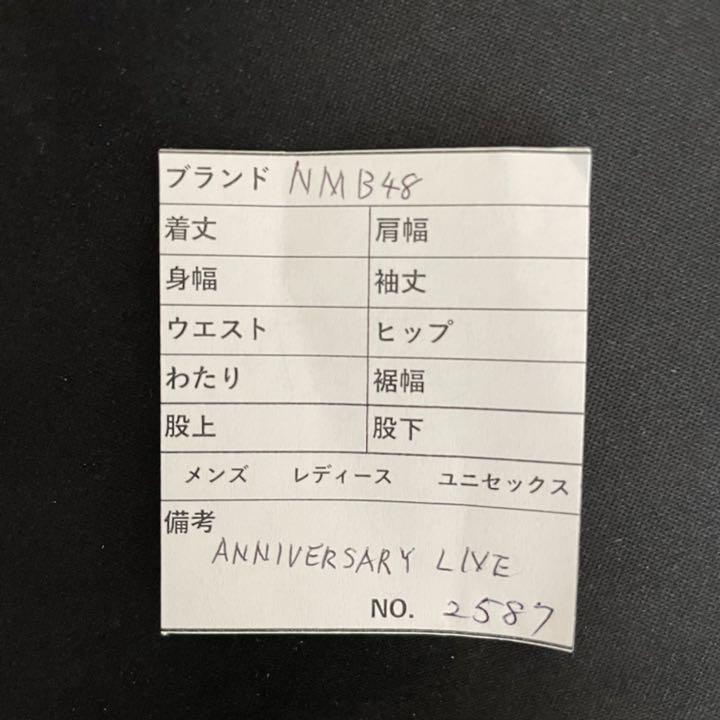 ブランド NMB48
着丈 肩幅
身幅 袖丈
ウエスト ヒップ
わたり 裾幅
股上 股下
メンズ レディース ユニセックス
備考
ANNIVERSARY LIVE
NO. 2587